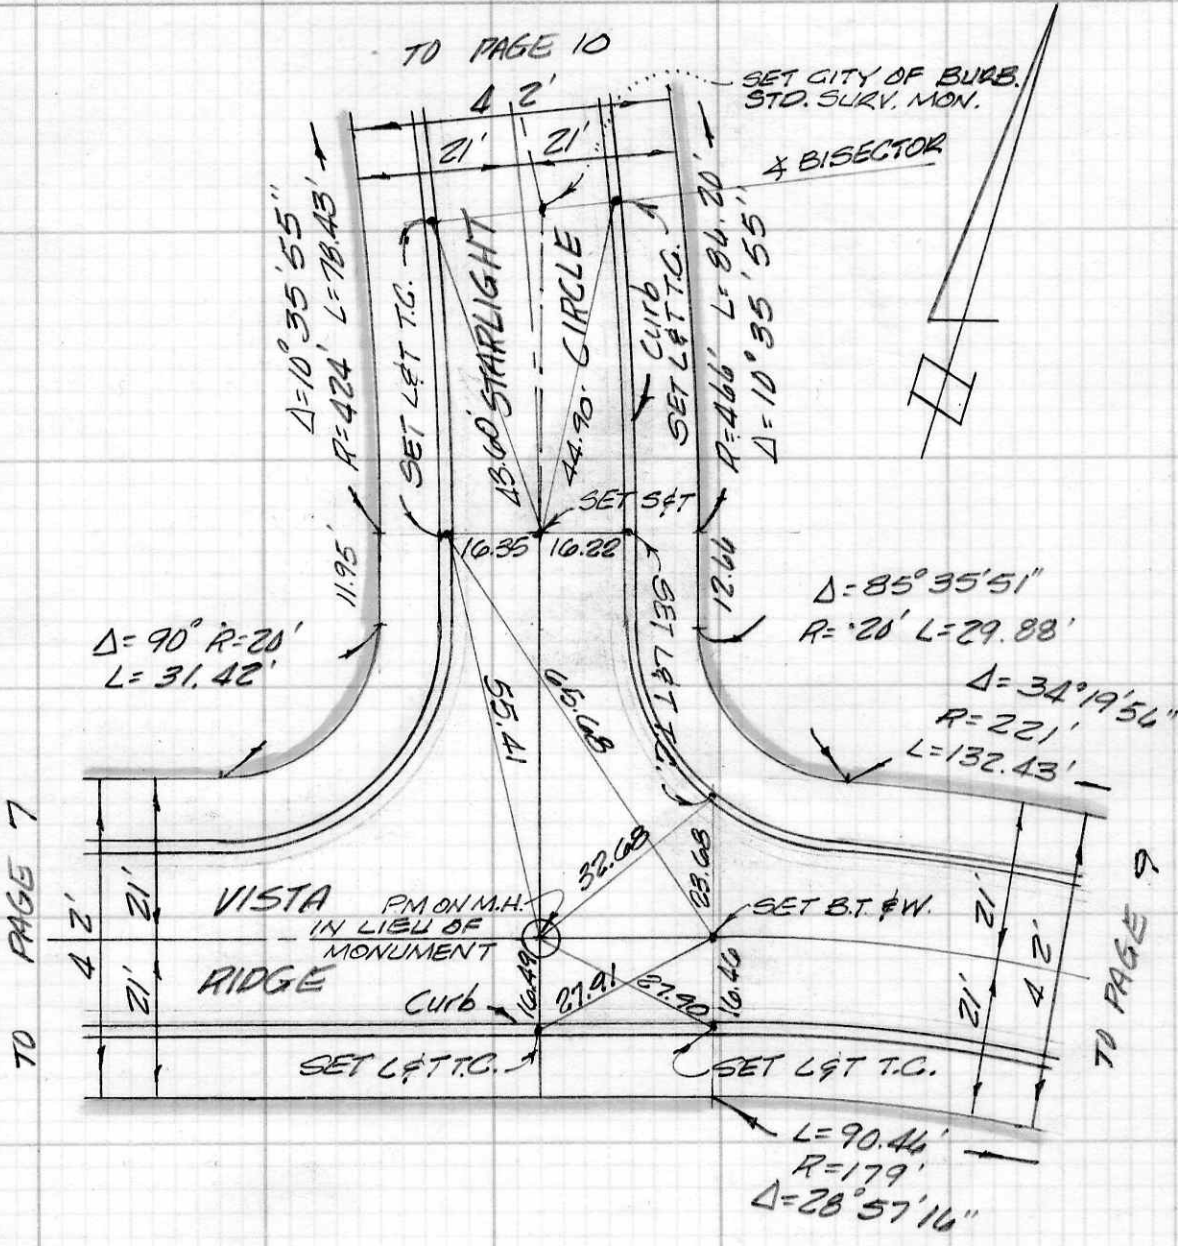 TO PAGE 10
SET CITY OF BURB.
STD. SURV. MON.
42'
21' 21'
∡ BISECTOR
Δ=10°35'55"
R=424' L=78.43'
SET L&T T.C.
STARLIGHT CIRCLE
43.60'
44.90'
Curb
SET L&T T.C.
R=466' L=86.20'
Δ=10°35'55"
SET S&T
16.35 16.22
11.95'
12.66
SET L&T T.C.
Δ=90° R=20'
L=31.42'
Δ=85°35'51"
R=20' L=29.88'
Δ=34°19'56"
R=221'
L=132.43'
55.41
65.68
32.68
23.68
TO PAGE 7
42'
21'
21'
VISTA
RIDGE
PM ON M.H.
IN LIEU OF
MONUMENT
SET B.T. & W.
16.49
27.91
27.90
16.46
Curb
SET L&T T.C.
SET L&T T.C.
21'
21'
42'
TO PAGE 9
L=90.46'
R=179'
Δ=28°57'16"